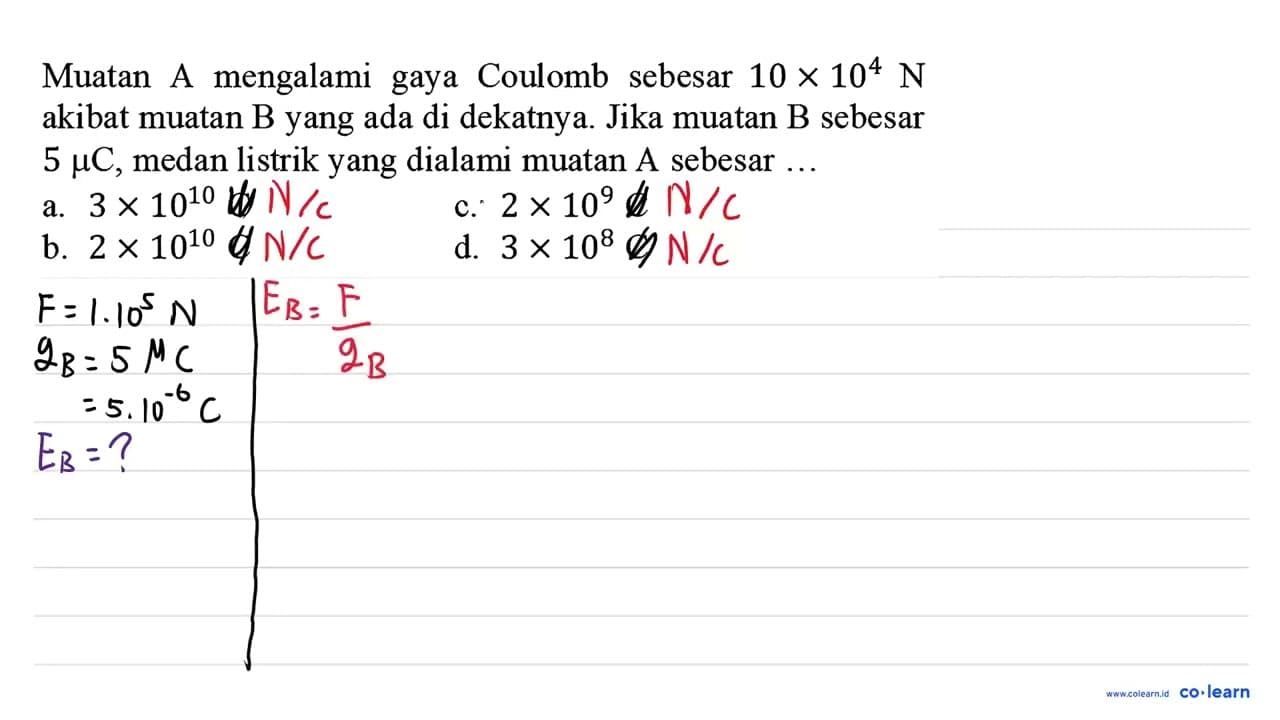 Muatan A mengalami gaya Coulomb sebesar 10 × 10⁴ N
akibat muatan B yang ada di dekatnya. Jika muatan B sebesar
5 μC, medan listrik yang dialami muatan A sebesar ...
a. 3 × 10¹⁰ N/C
c. 2 × 10⁹ N/C
b. 2 × 10¹⁰ N/C
d. 3 × 10⁸ N/C
F = 1.10⁵ N
q_B = 5 μC
= 5.10⁻⁶ C
E_B = ?
E_B = F
q_B
www.colearn.id co·learn